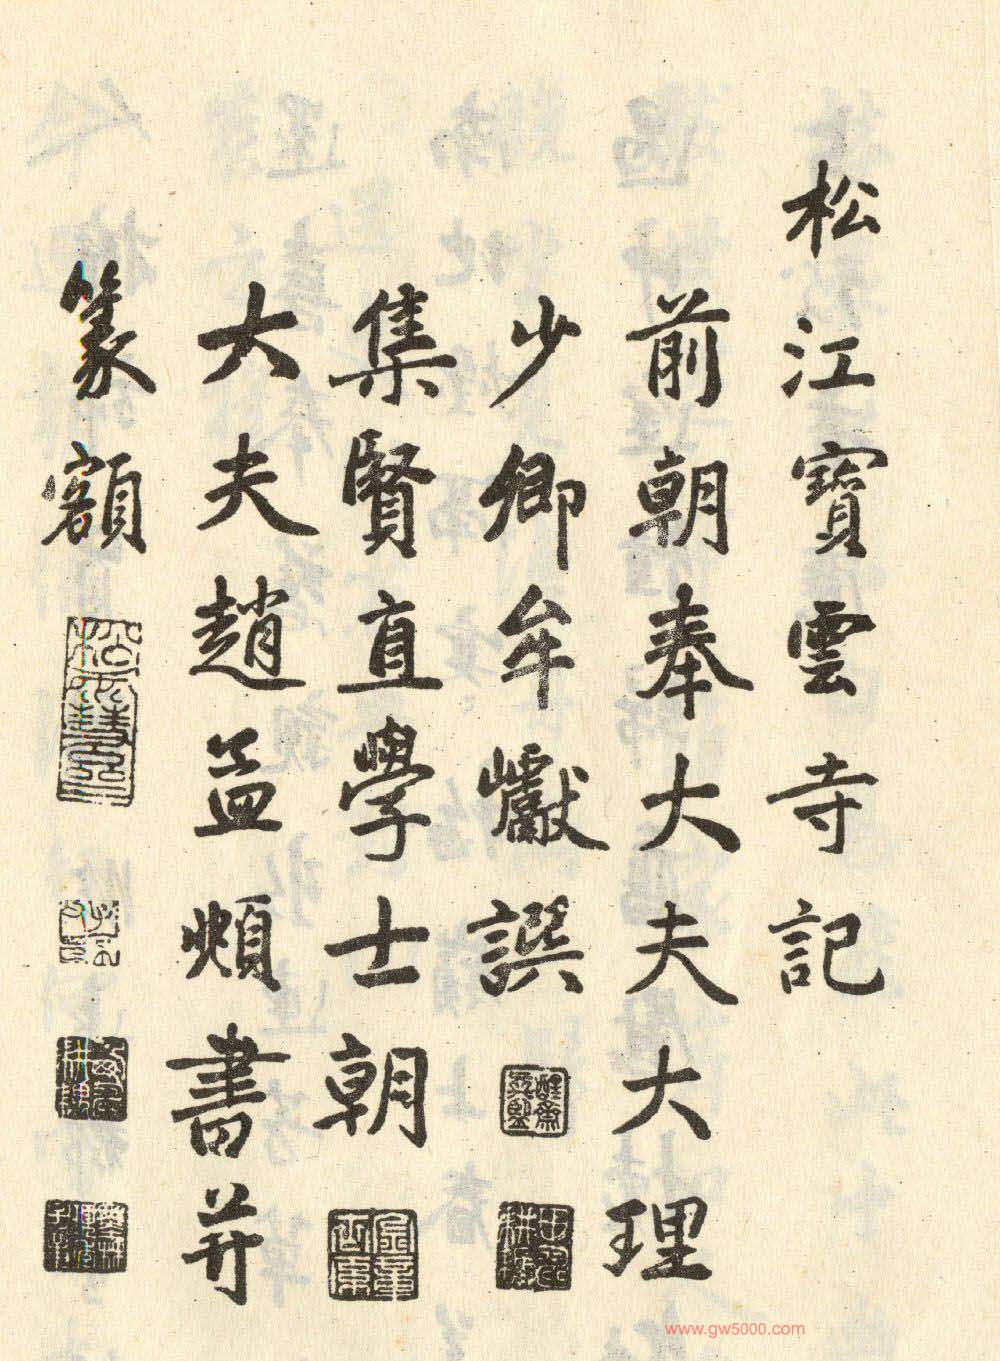 松江寶雲寺記
前朝奉大夫大理
少卿牟巘譔
集賢直學士朝
大夫趙孟頫書并
篆額
www.gw5000.com